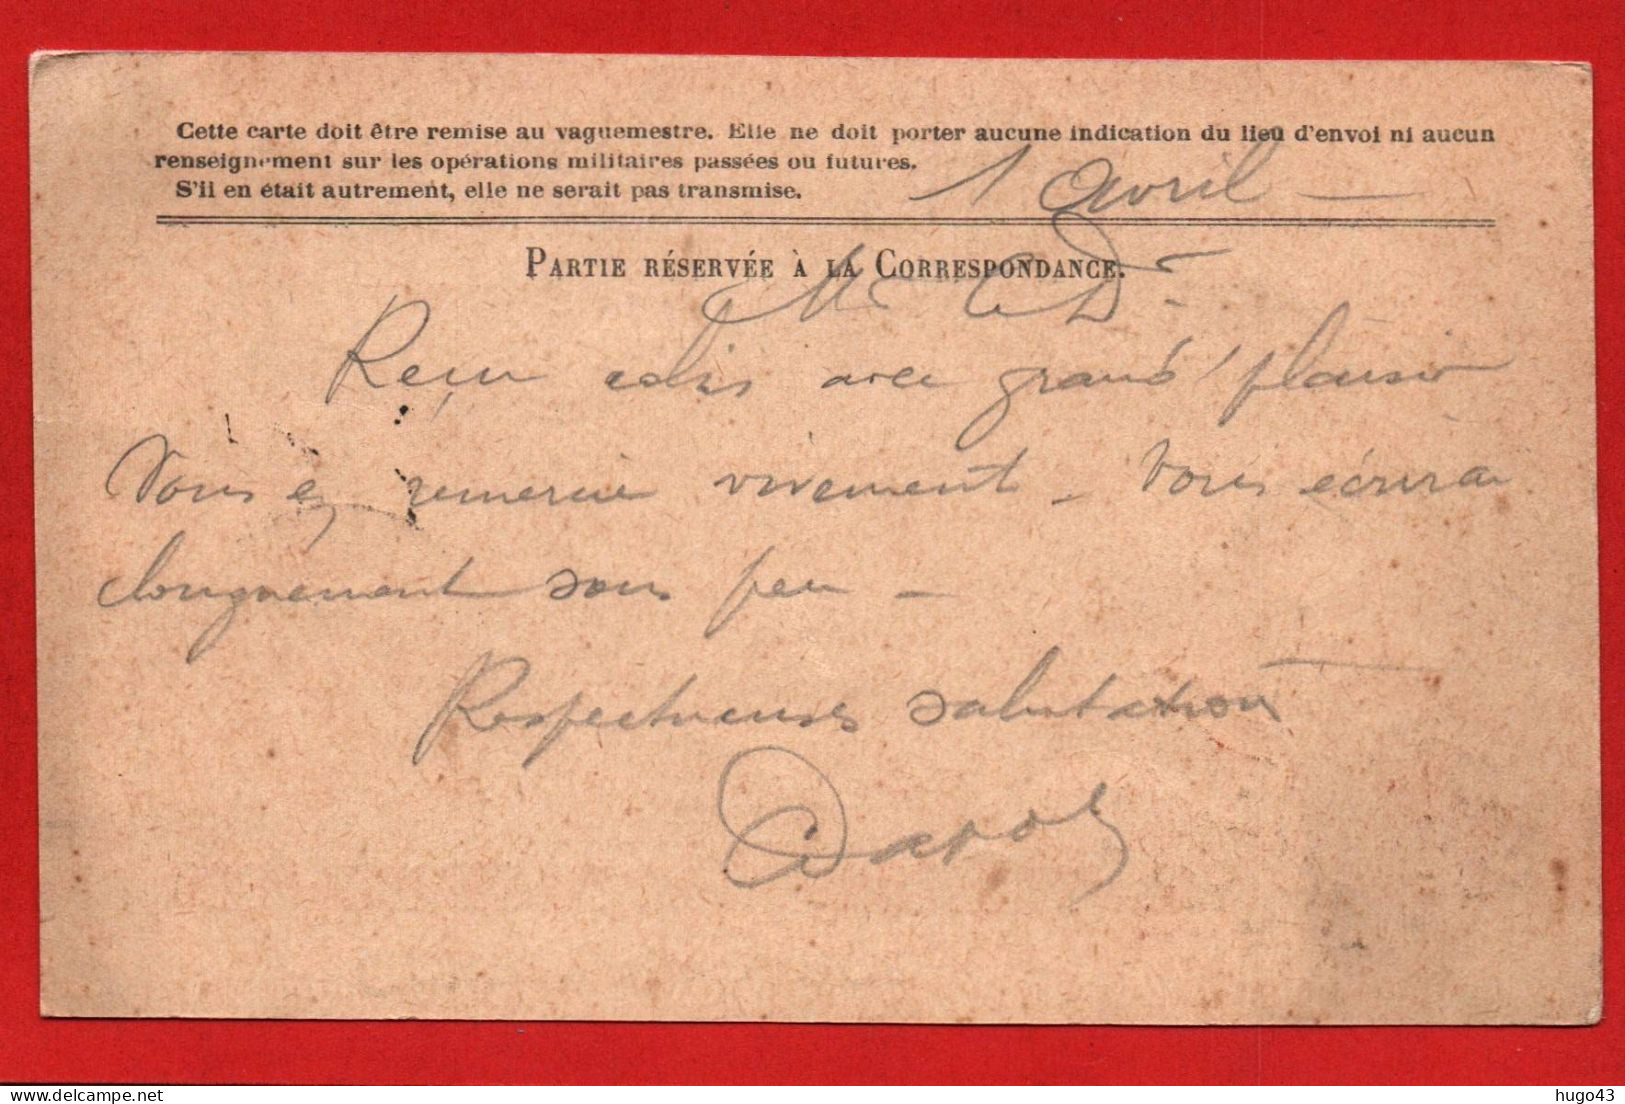 Cette carte doit être remise au vaguemestre. Elle ne doit porter aucune indication du lieu d'envoi ni aucun
renseignement sur les opérations militaires passées ou futures.
S'il en était autrement, elle ne serait pas transmise.
1 avril —
PARTIE RÉSERVÉE À LA CORRESPONDANCE.
Reçu colis avec grand plaisir
Vous en remercie vivement — Vous écrirai
longuement sous peu —
Respectueuses salutations
delcampe.net
hugo43